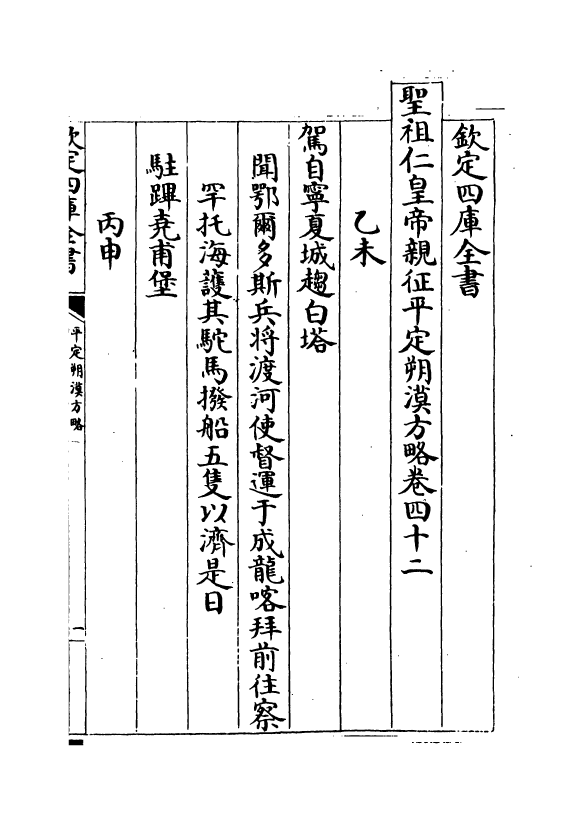 欽定四庫全書
聖祖仁皇帝親征平定朔漠方略卷四十二
乙未
駕自寧夏城趨白塔
聞鄂爾多斯兵將渡河使督運于成龍喀拜前往察
罕托海護其駝馬撥船五隻以濟是日
駐蹕堯甫堡
丙申
欽定四庫全書
平定朔漠方略
一